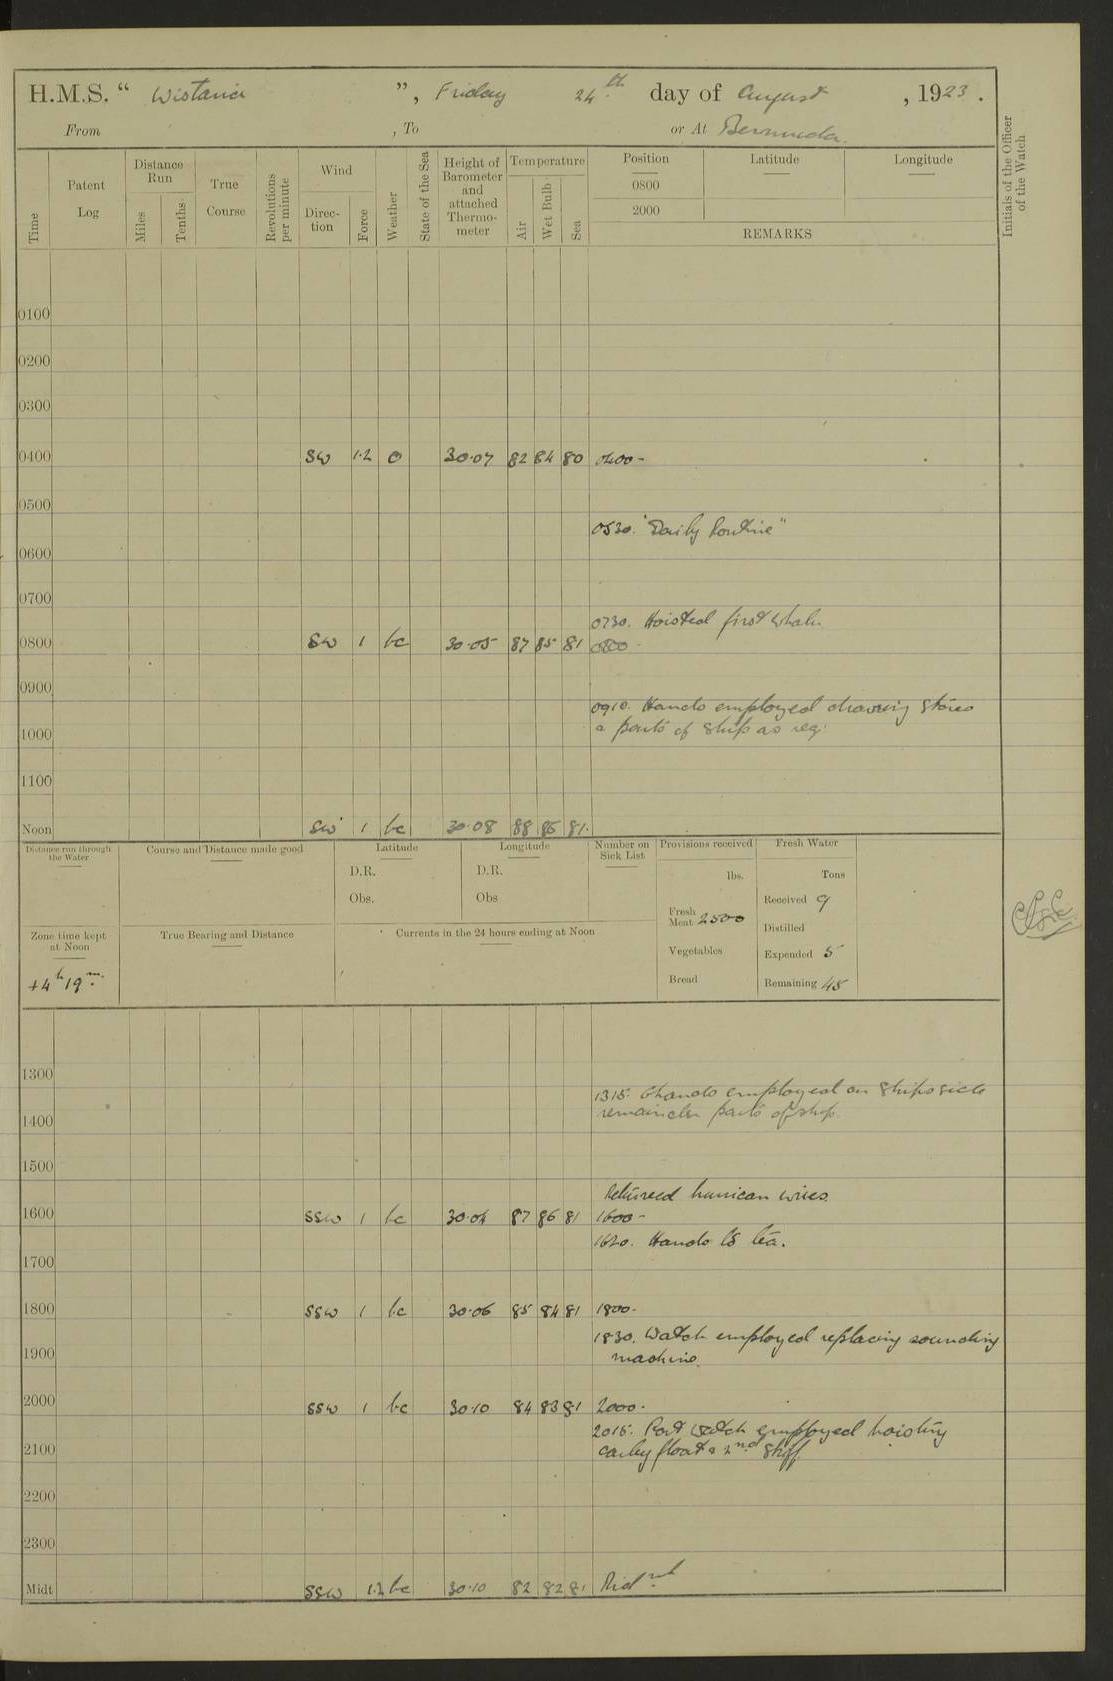 H.M.S. "Wistaria", Friday 24th day of August, 1923.
From , To or At Bermuda.
Time
Patent Log
Distance Run
Miles
Tenths
True Course
Revolutions per minute
Wind
Direction
Force
Weather
State of the Sea
Height of Barometer and attached Thermometer
Temperature
Air
Wet Bulb
Sea
Position
0800
2000
Latitude
Longitude
REMARKS
Initials of the Officer of the Watch
0100
0200
0300
0400 SW 1.2 o 30.07 82 84 80 0400-
0500
0530. "Daily Routine"
0600
0700
0730. Hoisted first whaler
0800 SW 1 bc 30.05 87 85 81 0800-
0900
0910. Hands employed drawing stores
& parts of ship as req:
1000
1100
Noon SW 1 bc 30.08 88 86 81.
Distance run through the Water
Course and Distance made good
Latitude
D.R.
Obs.
Longitude
D.R.
Obs
Number on Sick List
Provisions received
lbs.
Fresh Meat 2500
Vegetables
Bread
Fresh Water
Tons
Received 9
Distilled
Expended 5
Remaining 48
Zone time kept at Noon
+4h 19m.
True Bearing and Distance
Currents in the 24 hours ending at Noon
1300
1315. Hands employed on ships side
remainder parts of ship.
1400
1500
Returned hurrican wires
1600 SSW 1 bc 30.04 87 86 81 1600-
1620. Hands to tea.
1700
1800 SSW 1 bc 30.06 85 84 81 1800-
1830. Watch employed replacing sounding
machine.
1900
2000 SSW 1 bc 30.10 84 83 81 2000-
2015. Port watch employed hoisting
carley float & 2nd skiff.
2100
2200
2300
Midt SSW 1.2 bc 30.10 82 82 81 Midnt.